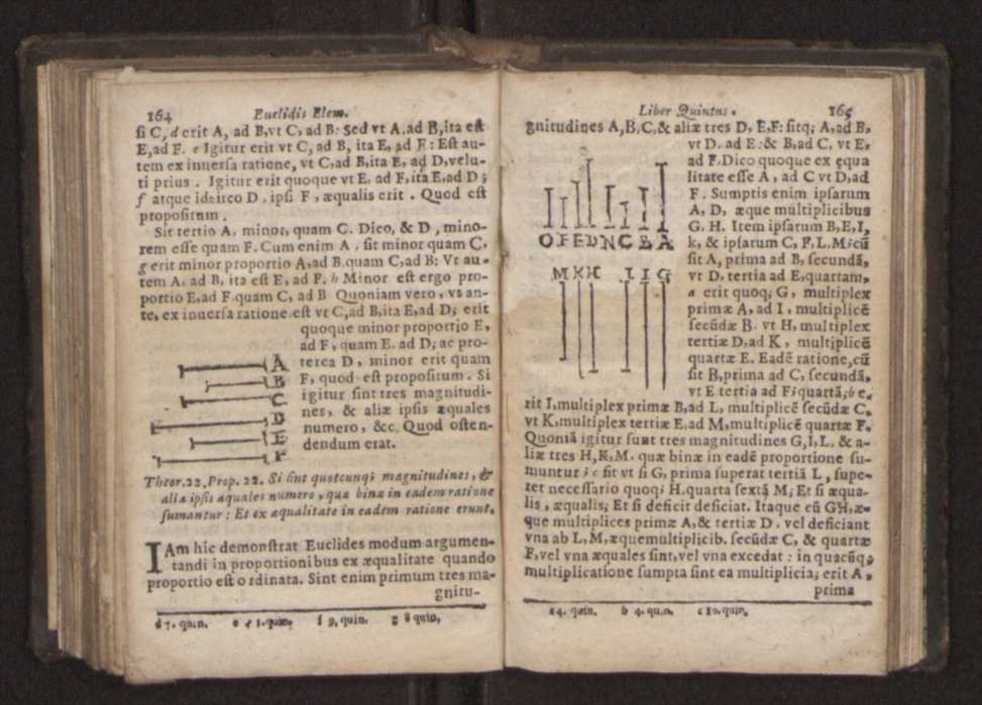 164 Euclidis Elem.
si C, d erit A, ad B, vt C, ad B: Sed vt A, ad B, ita est
E, ad F. e Igitur erit vt C, ad B, ita E, ad F: Est au-
tem ex inuersa ratione, vt C, ad B, ita E, ad D, velu-
ti prius. Igitur erit quoque vt E, ad F, ita E, ad D;
f atque idcirco D. ipsi F, æqualis erit. Quod est
propositum.
Sit tertio A. minor, quam C. Dico, & D, mino-
rem esse quam F. Cum enim A. sit minor quam C,
g erit minor proportio A, ad B. quam C, ad B; Vt au-
tem A. ad B, ita est E, ad F. h Minor est ergo pro-
portio E, ad F. quam C, ad B Quoniam vero, vt an-
te, ex inuersa ratione. est vt C, ad B, ita E, ad D; erit
quoque minor proportio E,
ad F, quam E. ad D; ac pro-
terea D, minor erit quam
F, quod est propositum. Si
igitur sint tres magnitudi-
nes, & aliæ ipsis æquales
numero, &c. Quod osten-
dendum erat.
A
B
C
D
E
F
Theor. 22. Prop. 22. Si sint quotcunq; magnitudines, &
aliæ ipsis æquales numero, quæ binæ in eadem ratione
sumantur: Et ex æqualitate in eadem ratione erunt.
IAm hic demonstrat Euclides modum argumen-
tandi in proportionibus ex æqualitate quando
proportio est ordinata. Sint enim primum tres ma-
gnitu-
d 7. quin. f 9. quin. g 8 quin.
Liber Quintus. 165
gnitudines A, B, C, & aliæ tres D, E, F: sitq; A, ad B,
vt D. ad E: & B, ad C, vt E,
ad F. Dico quoque ex equa
litate esse A, ad C vt D, ad
F. Sumptis enim ipsarum
A, D, æque multiplicibus
G. H. Item ipsarum B, E, I,
k, & ipsarum C, F, L. M; cũ
sit A, prima ad B, secundã,
vt D. tertia ad E, quartam,
a erit quoq; G, multiplex
primæ A, ad I, multiplicẽ
secũdæ B. vt H, multiplex
tertiæ D, ad K, multiplicẽ
quartæ E. Eadẽ ratione, cũ
sit B, prima ad C, secundã,
vt E tertia ad F; quartã; b e-
O F E D N C B A
M K H L I G
rit I, multiplex primæ B, ad L, multiplicẽ secũdæ C,
vt K, multiplex tertiæ E, ad M, multiplicẽ quartæ F.
Quoniã igitur sunt tres magnitudines G, I, L. & a-
liæ tres H, K, M. quæ binæ in eadẽ proportione su-
muntur; c fit vt si G, prima superat tertiã L, supe-
ret necessario quoq; H. quarta sextã M; Et si æqua-
lis, æqualis; Et si deficit deficiat. Itaque cũ GH, æ-
que multiplices primæ A, & tertiæ D. vel deficiant
vna ab L, M, æquemultiplicib. secũdæ C, & quartæ
F, vel vna æquales sint, vel vna excedat: in quacũq;
multiplicatione sumpta sint ea multiplicia; erit A,
prima
a 4. quin. b 4. quin. c 20. quin.